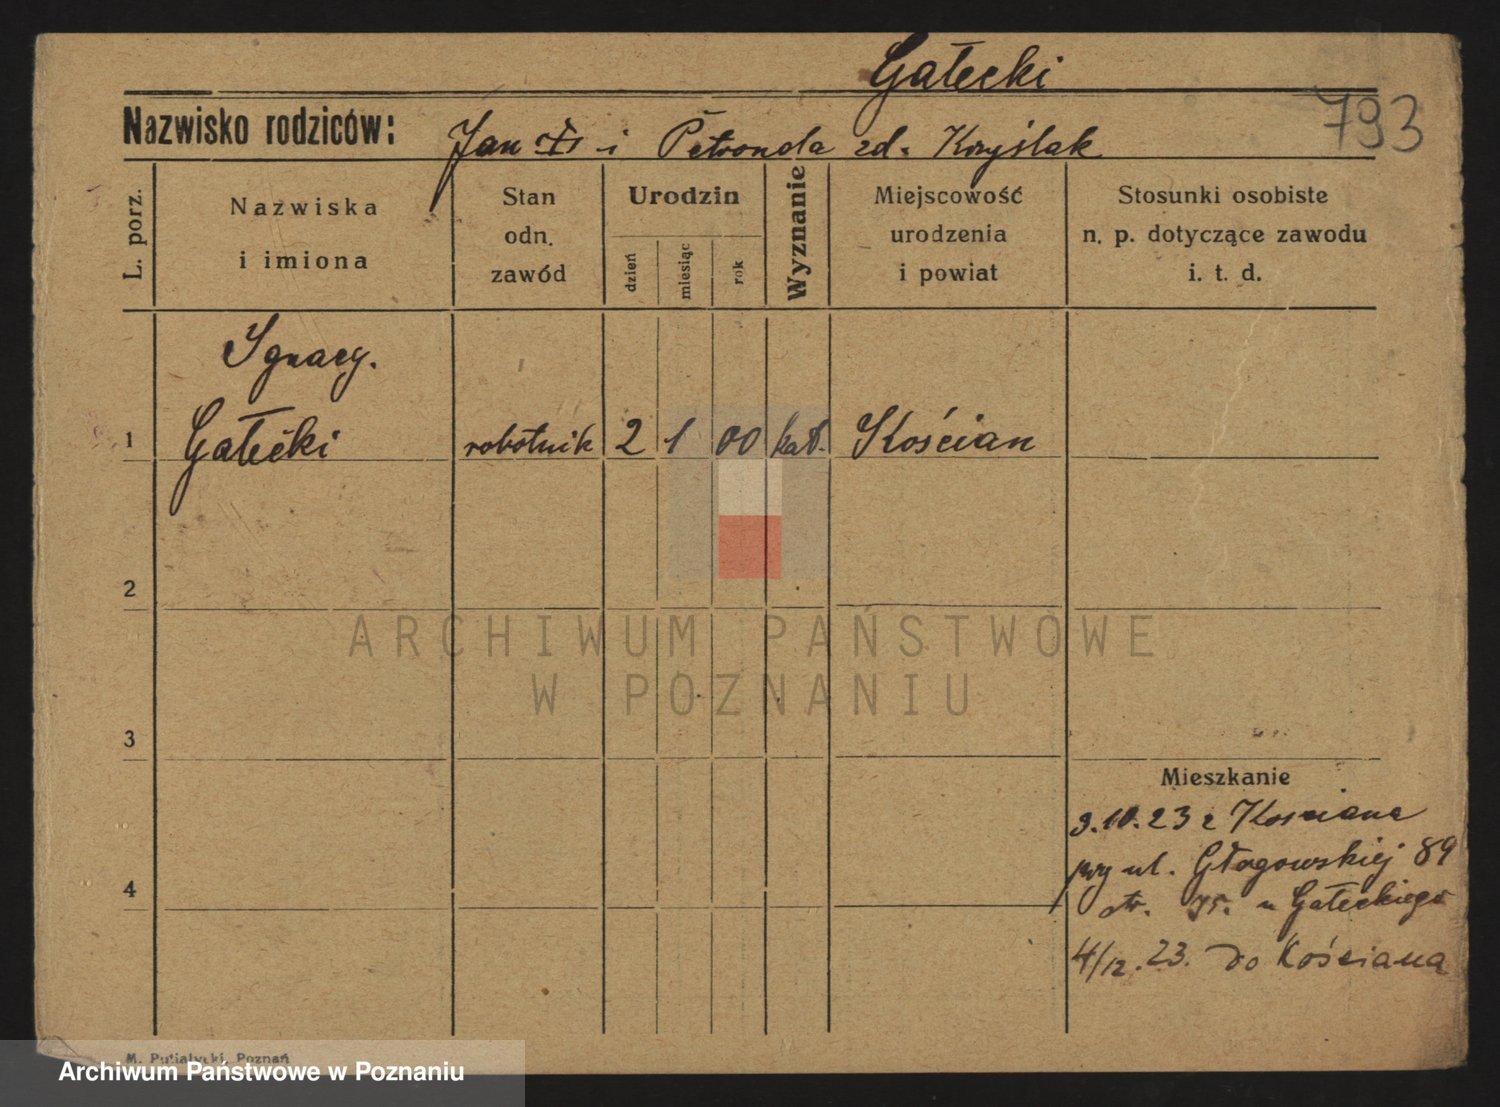 Gałecki
793
Nazwisko rodziców: Jan i Petronela zd. Kryślak
L. porz.
Nazwiska i imiona
Stan odn. zawód
Urodzin
dzień
miesiąc
rok
Wyznanie
Miejscowość urodzenia i powiat
Stosunki osobiste n. p. dotyczące zawodu i. t. d.
Ignacy.
1 Gałecki robotnik 2 1 00 kat. Kościan
2
ARCHIWUM PAŃSTWOWE
W POZNANIU
3
Mieszkanie
3.10.23 z Kosciana
przy ul. Głogowskiej 89
u Gałeckiego
4
4/12.23. do Kościana
M. Putiatycki, Poznań
Archiwum Państwowe w Poznaniu